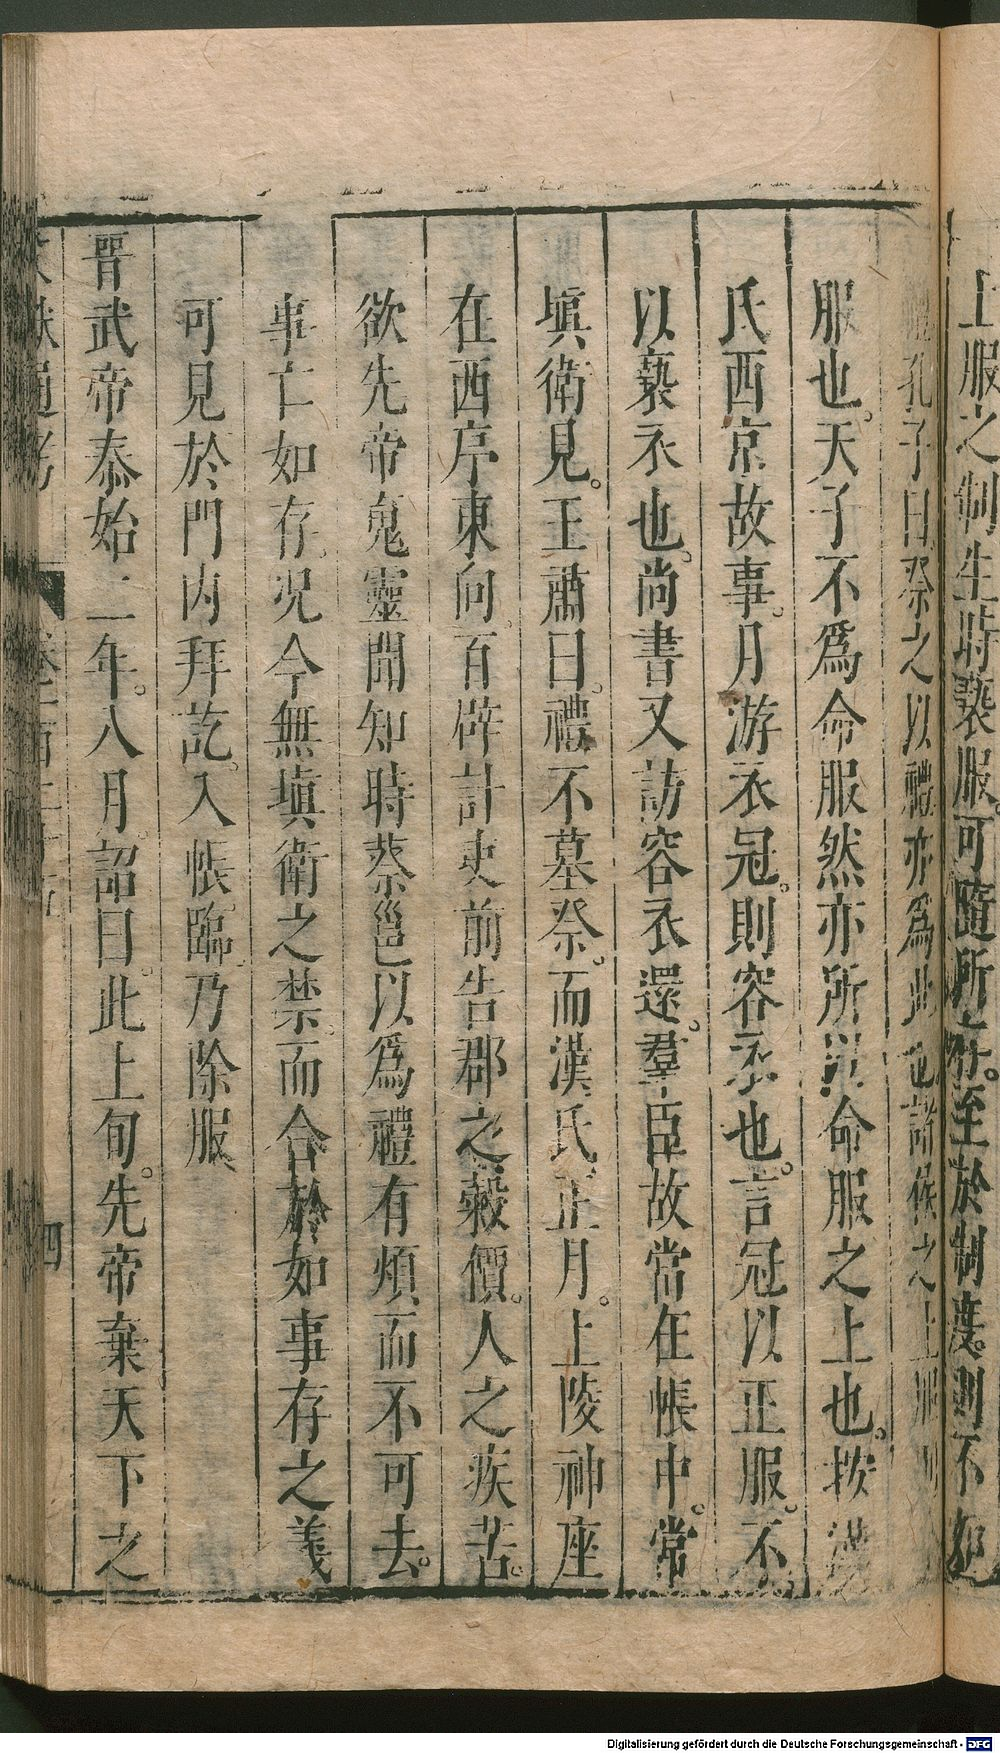 上服之制生時褻服可隨所存至於制度則不如
禮孔子曰祭之以禮亦爲此也諸侯之上服則
服也天子不爲命服然亦所以命服之上也按漢
氏西京故事月游衣冠則容衣也言冠以正服不
以褻衣也尚書又訪容衣還羣臣故當在帳中常
塡衛見王肅曰禮不墓祭而漢氏正月上陵神座
在西序東向百辟計吏前告郡之穀價人之疾苦
欲先帝䰟靈聞知時蔡邕以爲禮有煩而不可去
事亡如存況今無塡衛之禁而合於如事存之義
可見於門內拜訖入帳臨乃除服
晉武帝泰始二年八月詔曰此上旬先帝棄天下之
文獻通考 卷一百二十五 四
Digitalisierung gefördert durch die Deutsche Forschungsgemeinschaft - DFG